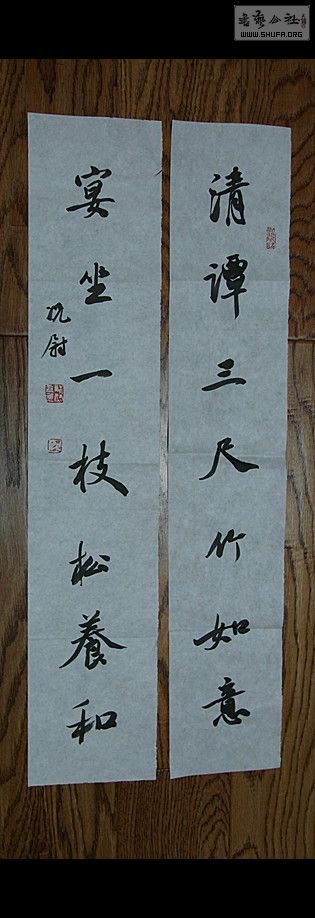 書藝公社
WWW.SHUFA.ORG
清譚三尺竹如意
宴坐一枝松養和